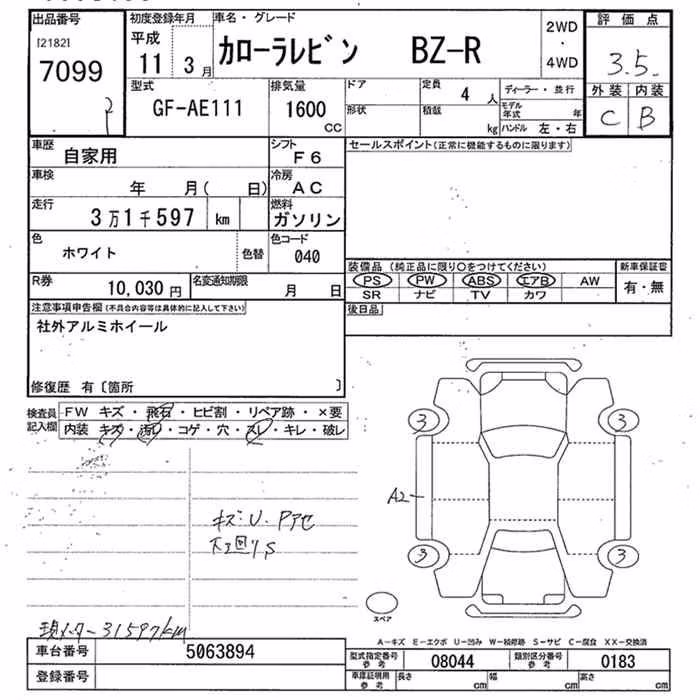 出品番号
[2182]
7099
初度登録年月
平成
11 3月
車名・グレード
カローラレビン BZ-R
2WD
・
4WD
評価点
3.5
外装 内装
C B
型式
GF-AE111
排気量
1600
CC
ドア
形状
定員
4 人
積載
kg
ディーラー・並行
モデル年式 年
ハンドル 左・右
車歴
自家用
シフト
F6
車検
年 月( 日)
冷房
AC
走行
3万1千597 km
燃料
ガソリン
色
ホワイト
色替
色コード
040
R券
10,030 円
名変通知期限
月 日
セールスポイント(正常に機能するものに限ります)
装備品 (純正品に限り○をつけてください)
PS PW ABS エアB AW
SR ナビ TV カワ
新車保証書
有・無
後日品
注意事項申告欄(不具合内容等は具体的に記入して下さい)
社外アルミホイール
修復歴 有〔箇所 〕
検査員
記入欄
FW キズ・飛石・ヒビ割・リペア跡・×要
内装 キズ・汚れ・コゲ・穴・スレ・キレ・破レ
キズ・U・Pアセ
下回りS
現メーター31597km
3 3
A2
3 3
スペア
A-キズ E-エクボ U-凹み W-板修跡 S-サビ C-腐食 XX-交換済
車台番号
5063894
登録番号
型式指定番号
参考
08044
類別区分番号
参考
0183
車庫証明用
参考
長さ cm
幅 cm
高さ cm